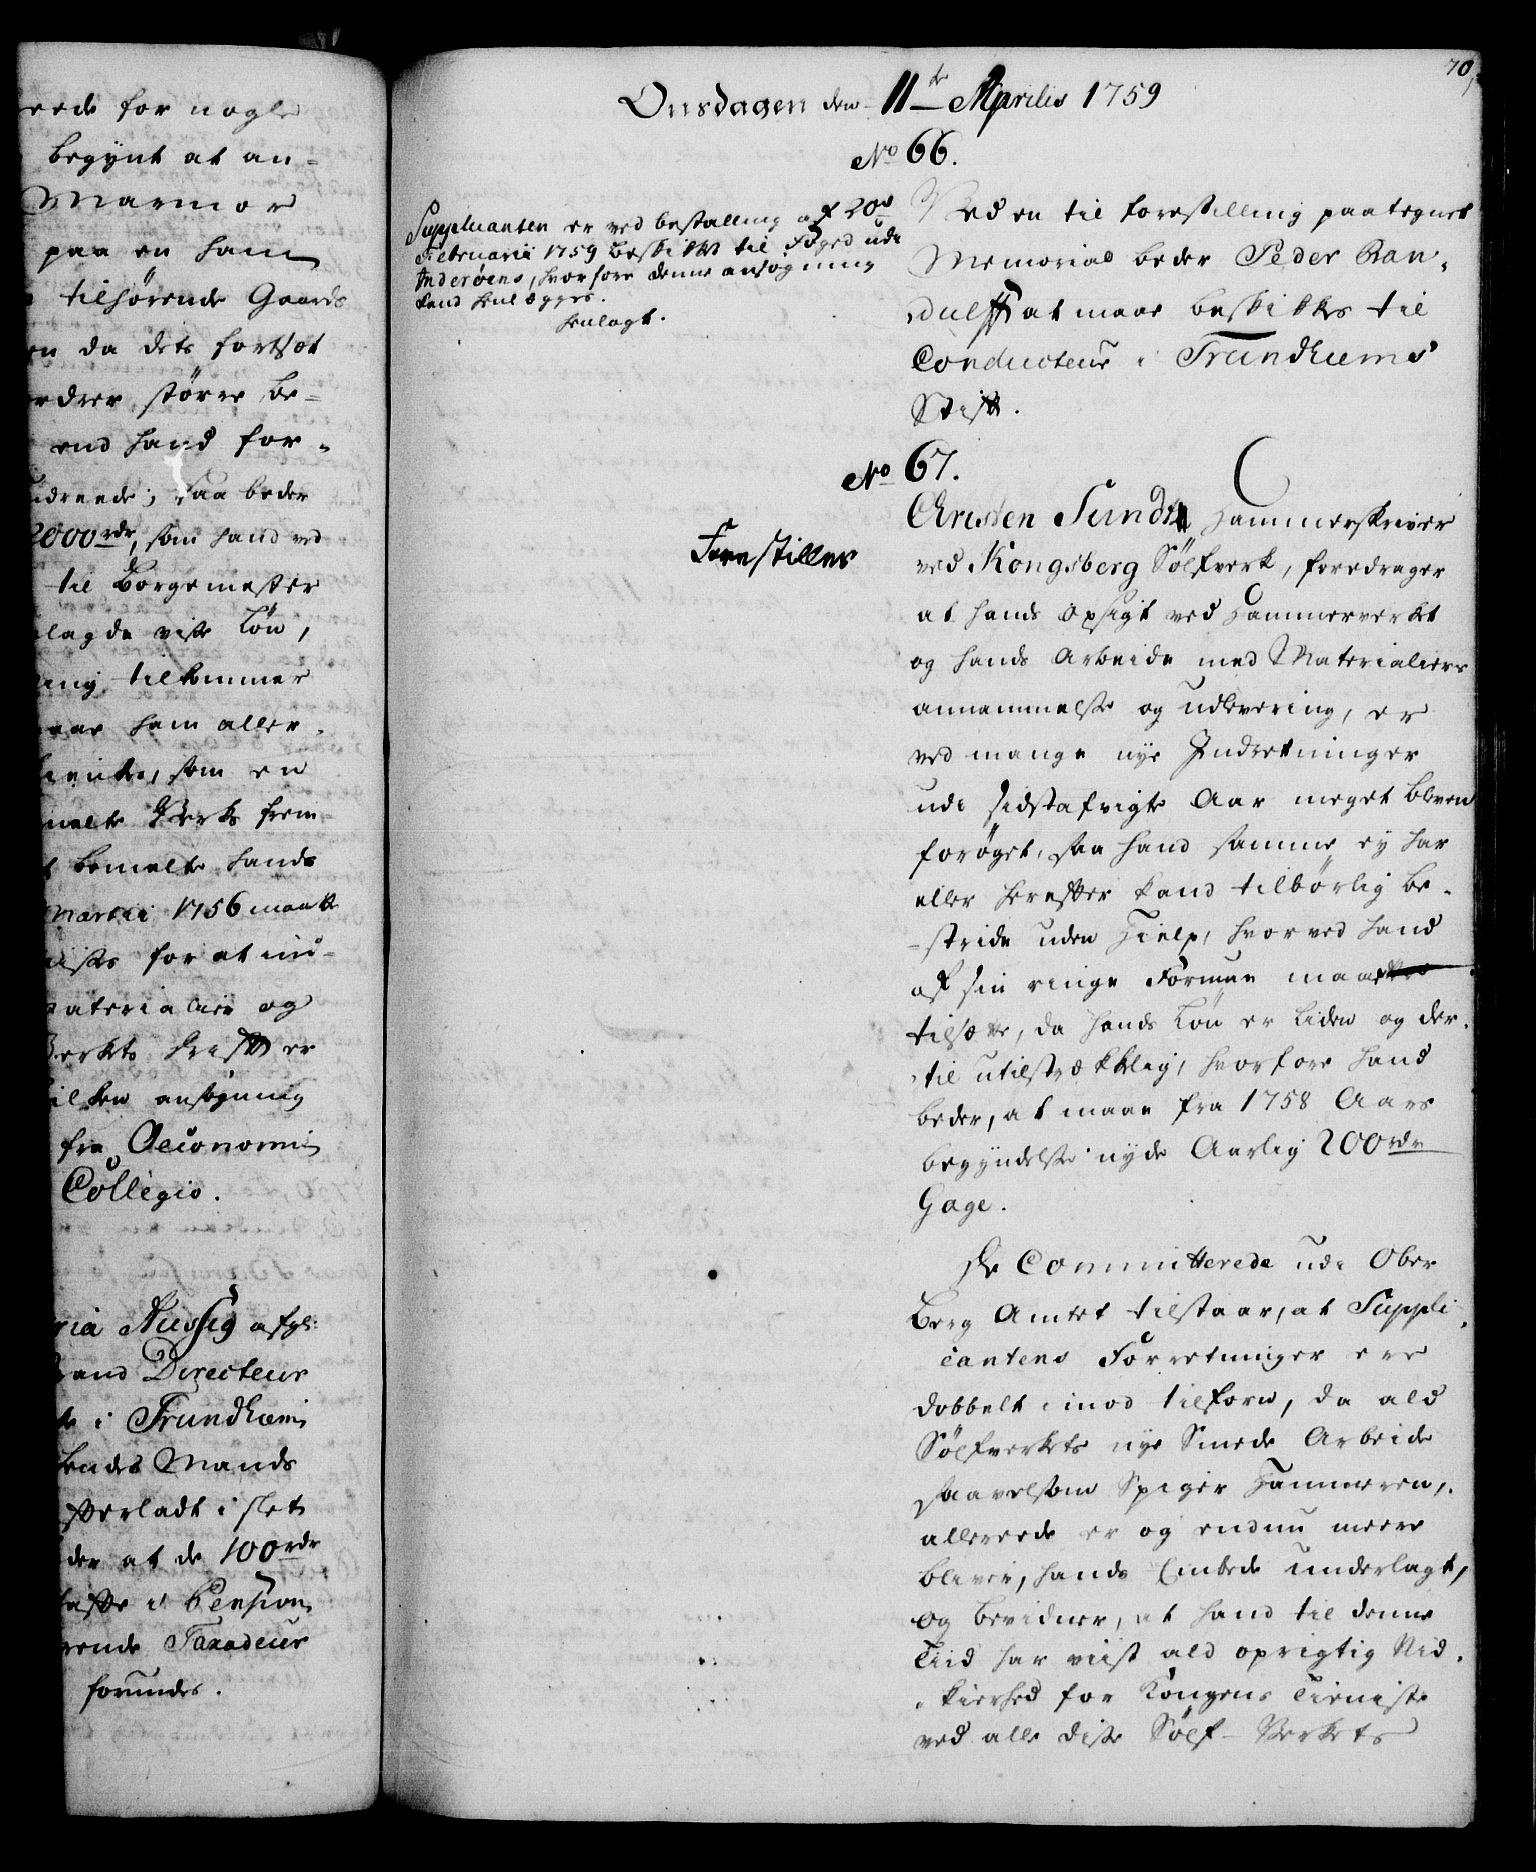 rede for nogle
begynt at an-
Marmor
paa en ham
tilhørende Gaards
en da dets fortsæt
ordrer større be-
end hand for-
udreede; saa beder
2000 rdr, som hand ved
til Borgemester
lagde viste Løn,
ing tilkommer
ham aller-
som en
Verks frem-
bemelte hands
Martii 1756 maatte
for at ind-
Materialier og
Verkets drift er
ilken ansøgning
fra Oeconomi
Collegio.
ria Nussig afgl:
and Directeur
te i Trundhiem
hendes Mands
efterladt i slet
der at de 100 rdr
i Pension
rende Taxadeur
forundes.
70,
Onsdagen den 11te Aprilis 1759
No 66.
Supplicanten er ved bestalling af 20de
Februarii 1759 beskikket til Foged udi
Inderøens, hvorfore denne ansøgning
kand henlægges.
henlagt.
Ved en til forestilling paategnet
Memorial beder Peder Ran-
dulff at maae beskikkes til
Conducteur i Trundhiems
Stift.
No 67.
Forestilles
Christen Sundt, Hammerskriver
ved Kongsberg Sølfverk, foredrager
at hands opsigt ved Hammerverket
og hands Arbeide med Materialiers
annammelse og udlevering, er
ved mange nye Indretninger
udi sidstafvigte Aar meget bleven
forøget, saa hand samme ey har
eller herefter kand tilbørlig be-
stride uden Hielp, hvorved hand
af sin ringe Formue maae
tilsætte, da hands Løn er liden og der-
til utilstrækkelig, hvorfore hand
beder, at maae fra 1758 Aars
begyndelse nyde Aarlig 200 rdr
Gage.
De Committerede udi Ober
Berg Amtet tilstaar, at Suppli-
cantens Forretninger ere
dobbelt imod tilforn, da ald
Sølfverkets nye Smede Arbeide
saavelsom Spiger Hammeren,
allereede er og endnu meere
bliver, hands Embede underlagt,
og bevidner, at hand til denne
Tiid har viist ald oprigtig Nid-
kierhed for Kongens Tieniste
ved alle disse Sølf-Verkets